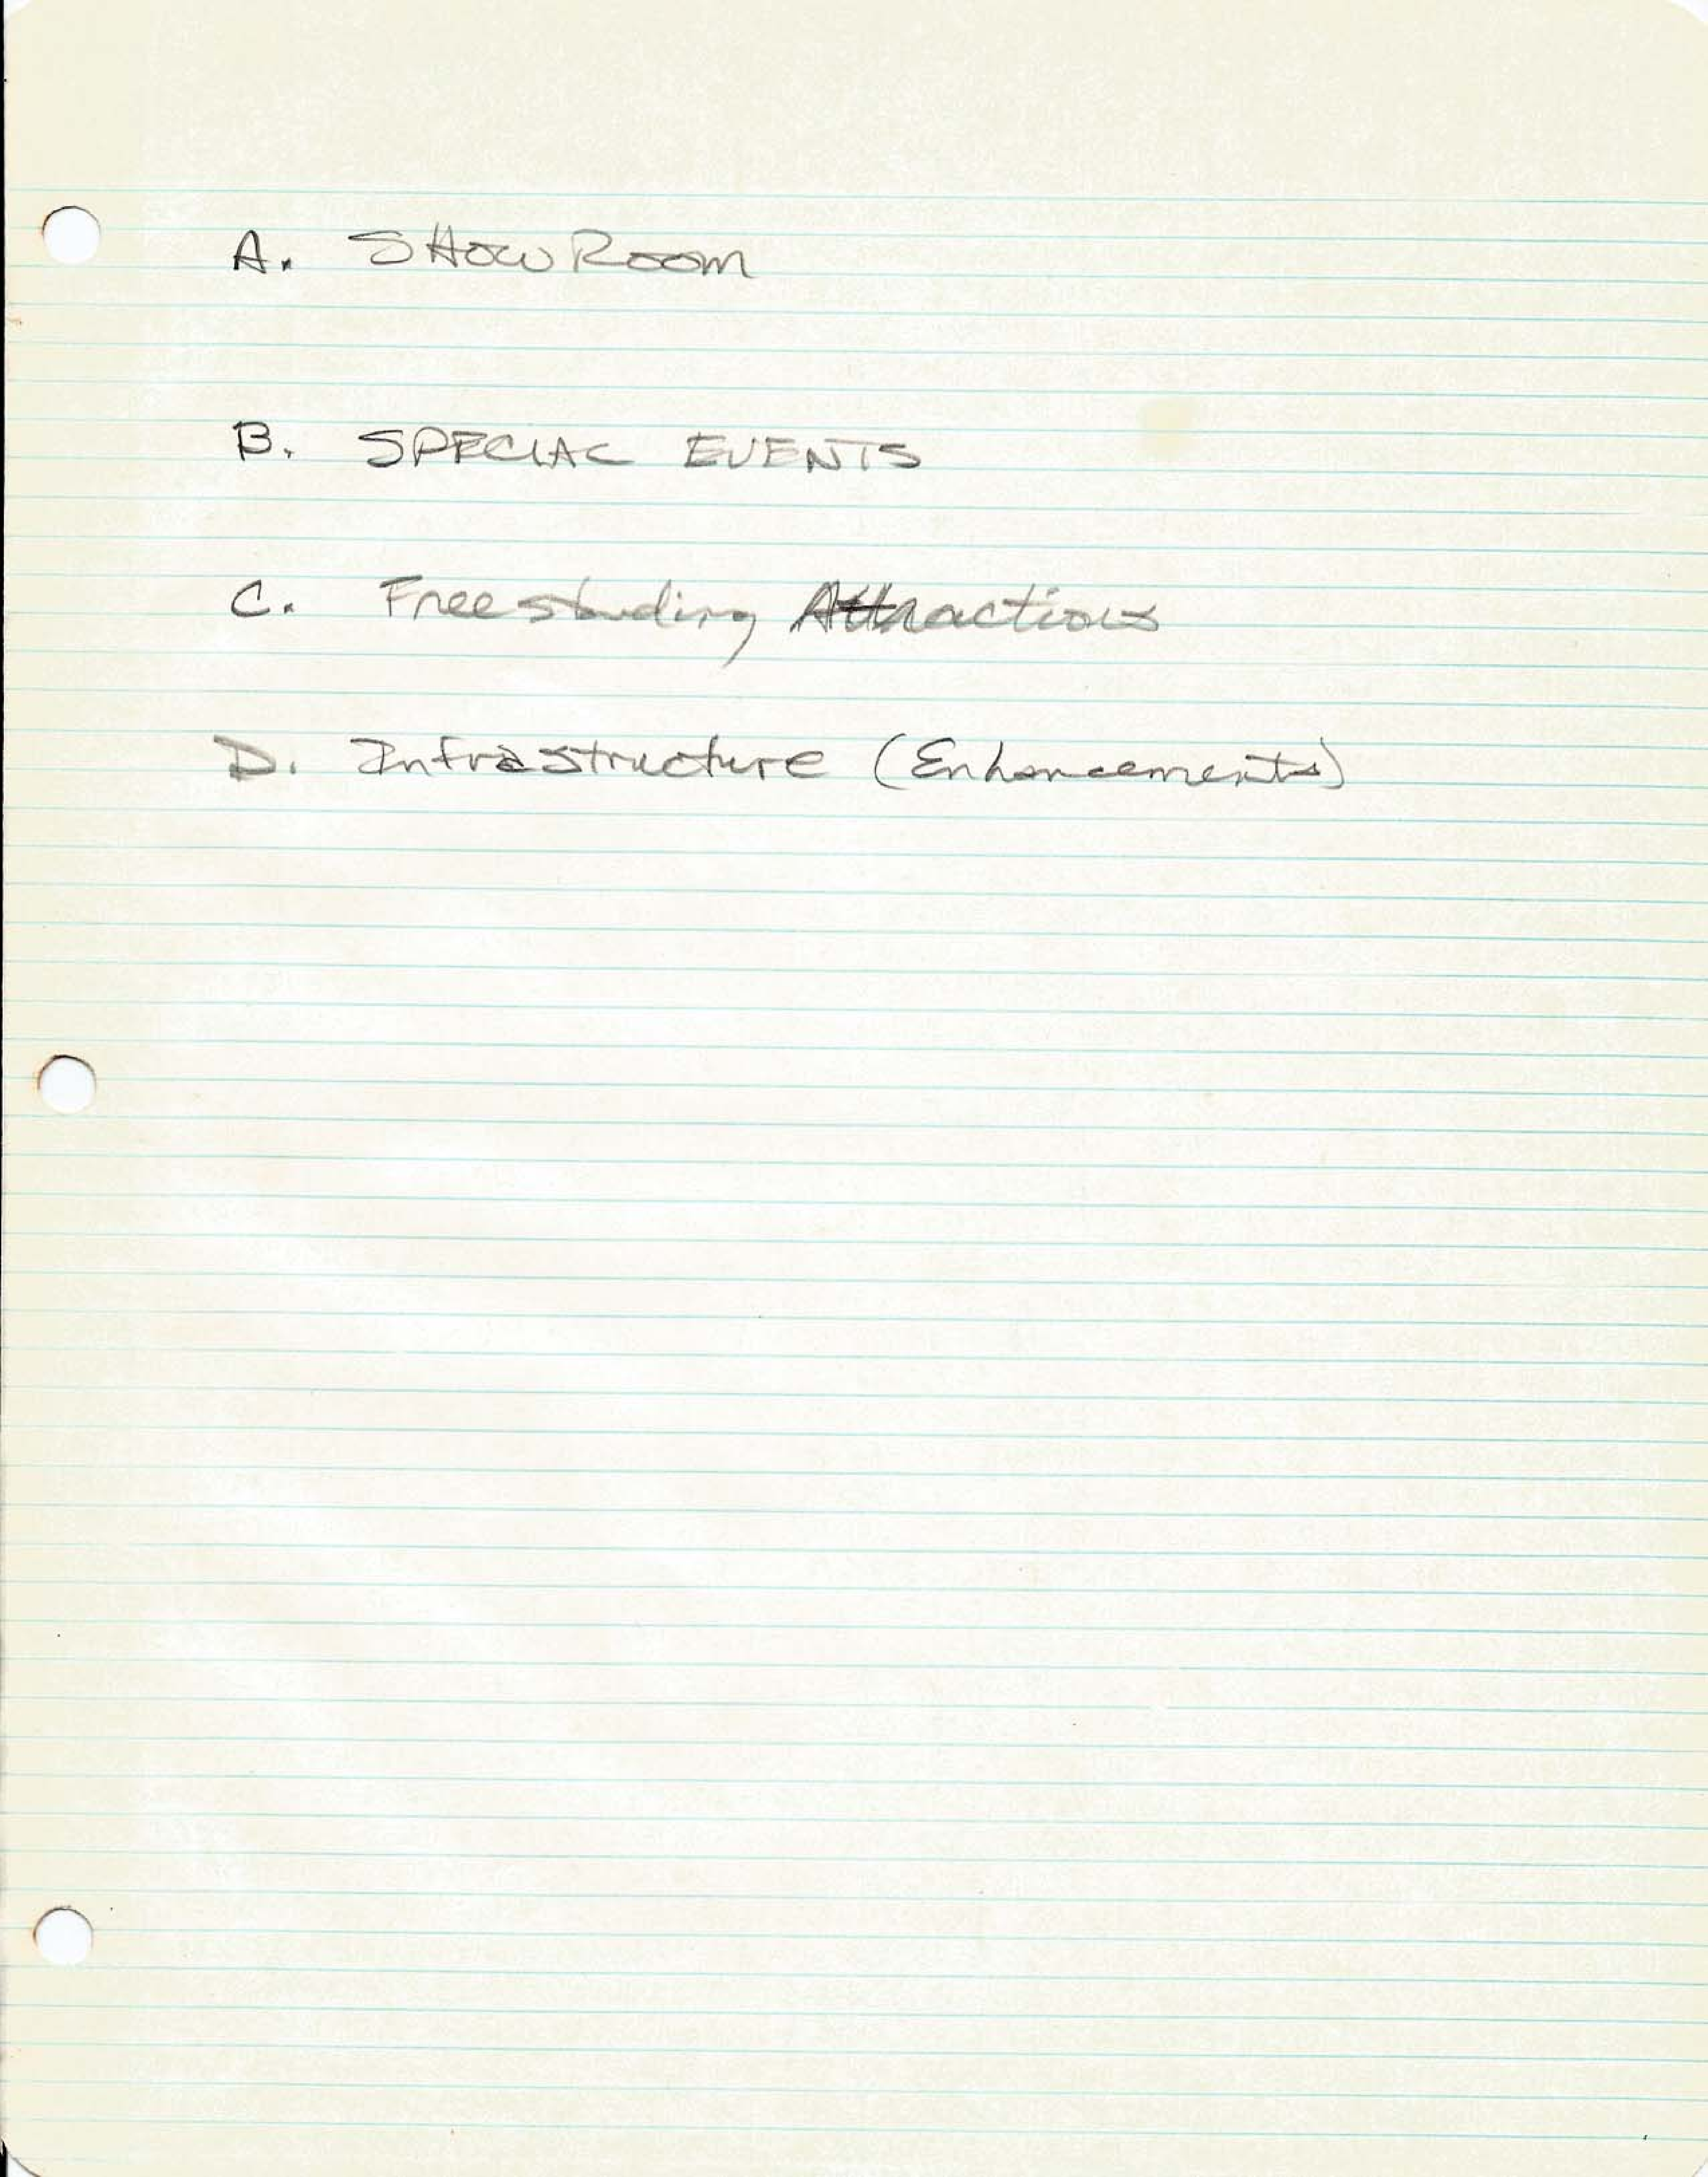 A. SHOW ROOM
B. SPECIAL EVENTS
C. Freestanding Attractions
D. Infrastructure (Enhancements)